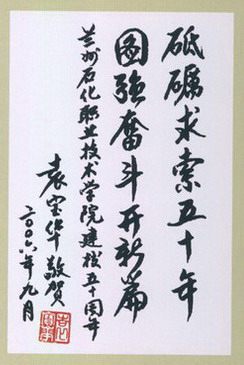 砥砺求索五十年
图强奋斗开新篇
兰州石化职业技术学院建校五十周年
袁宝华敬贺
二〇〇六年九月